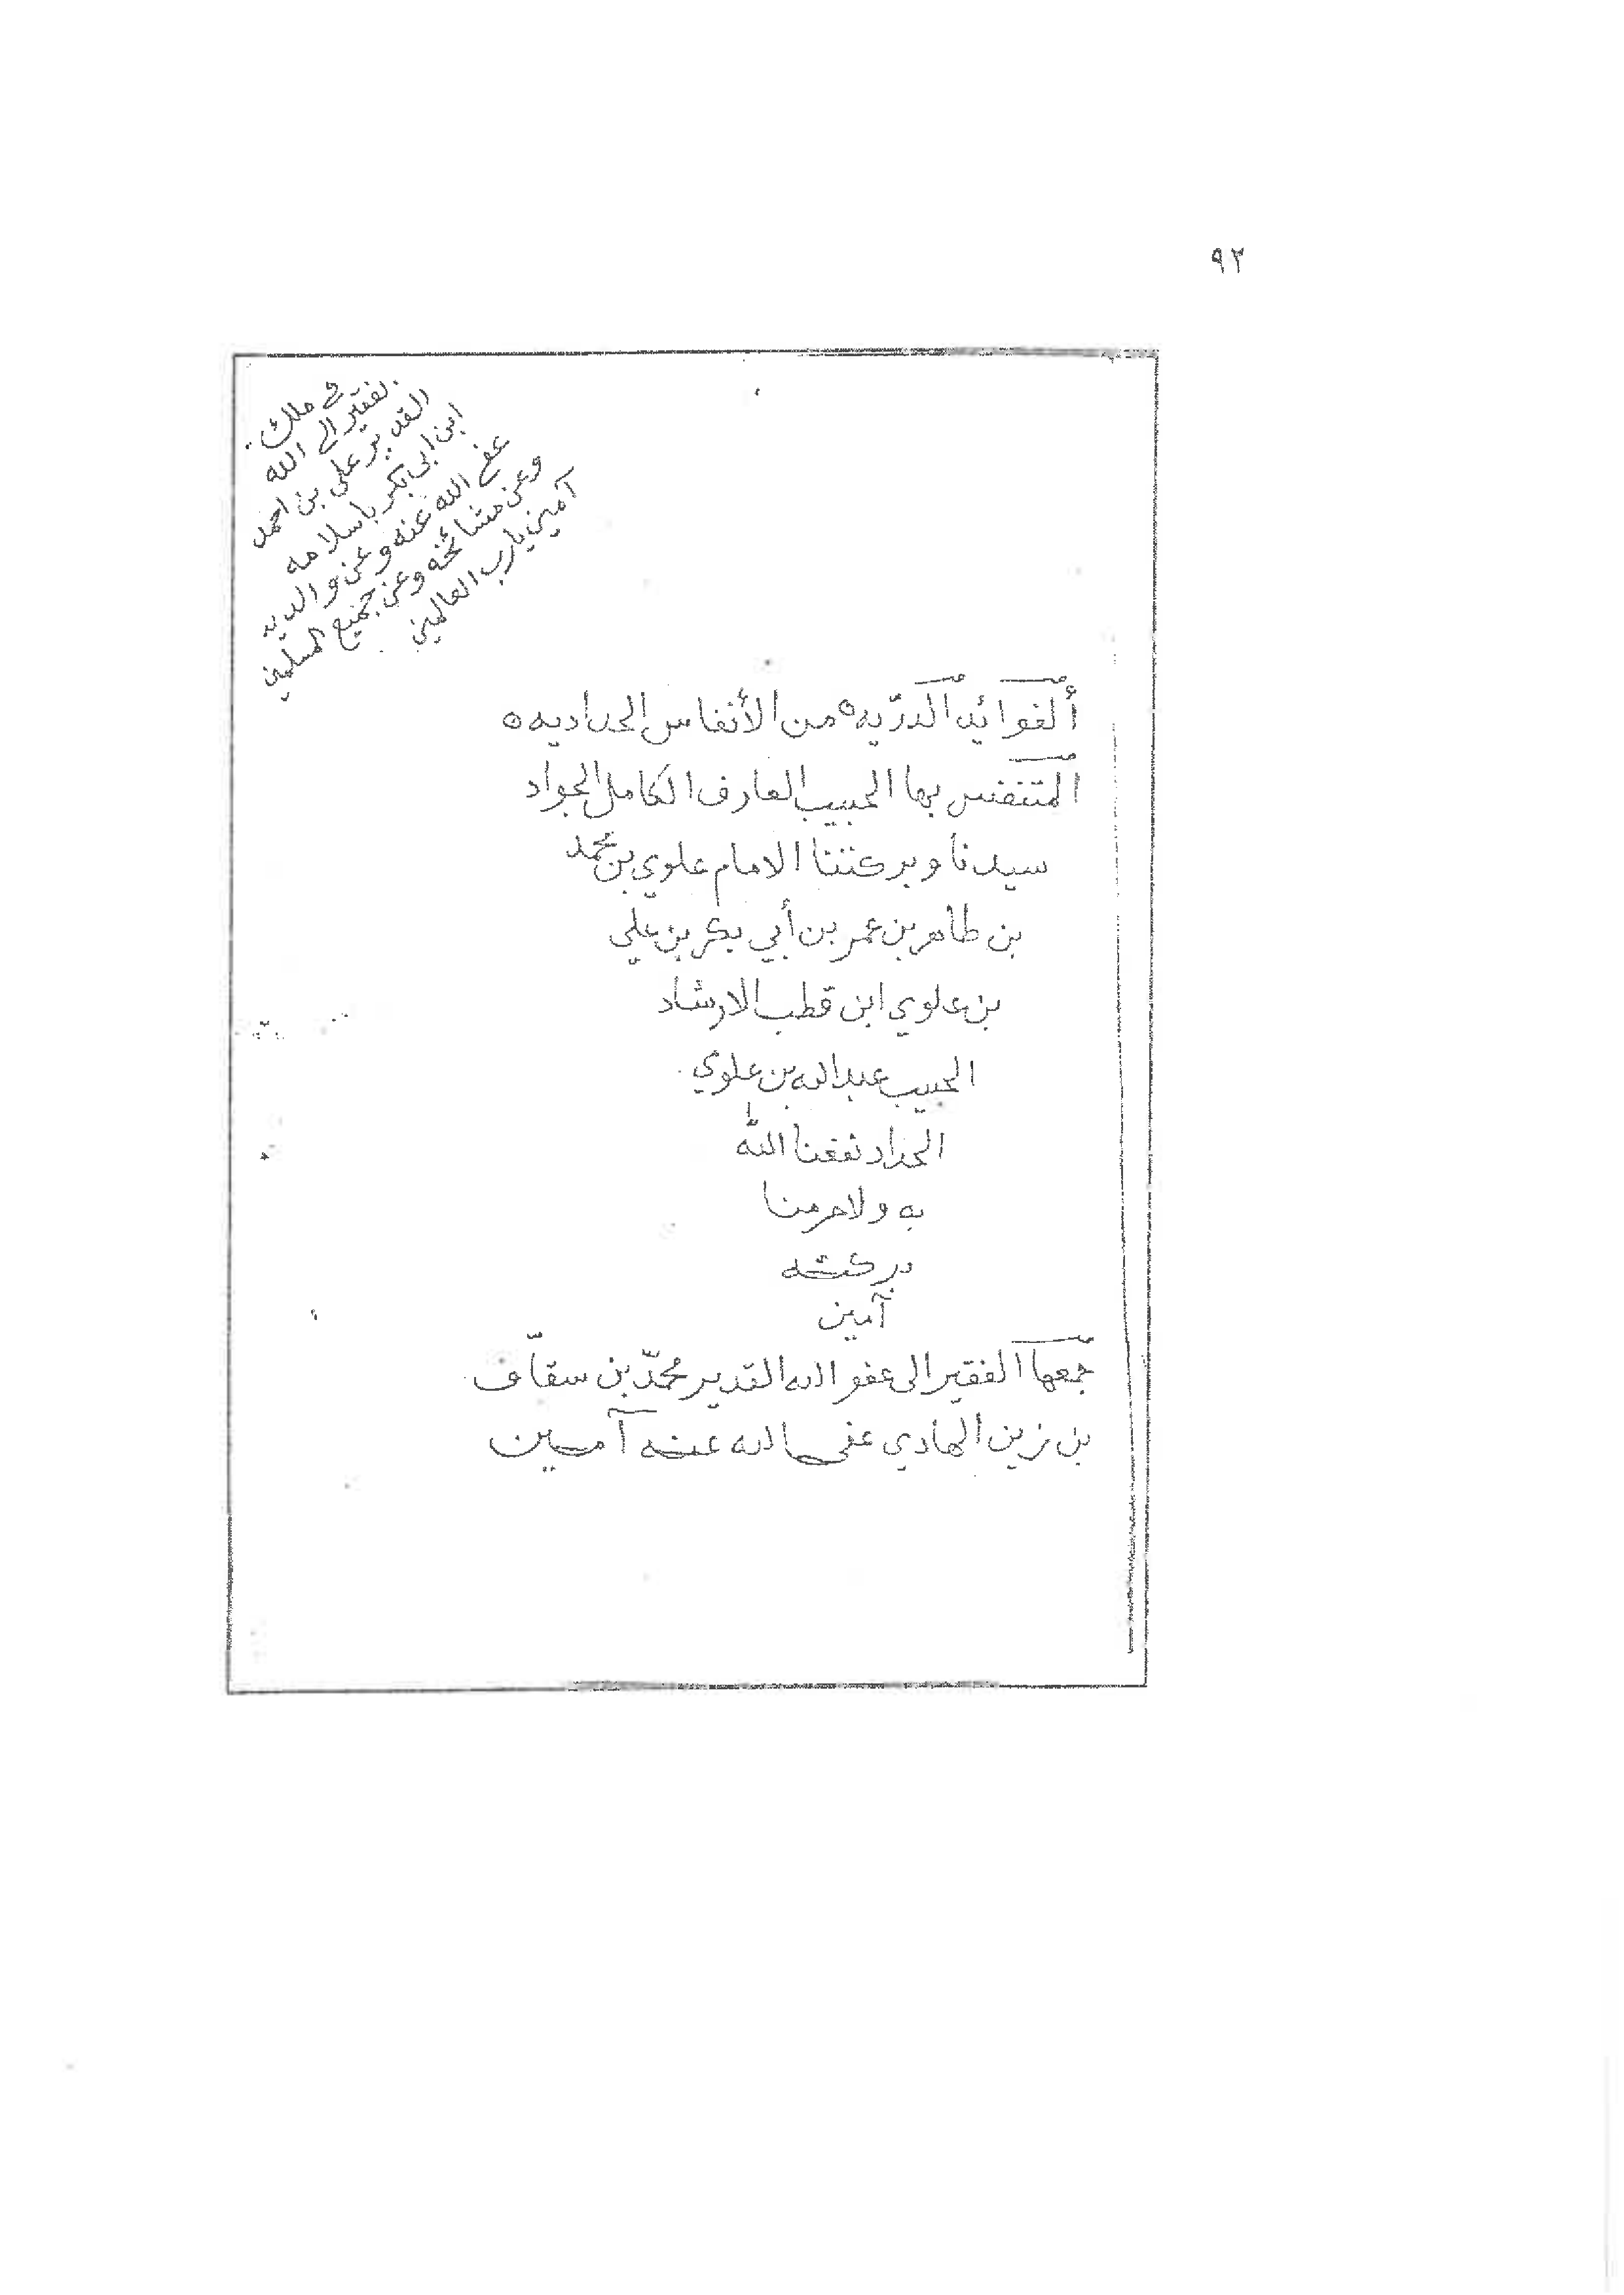 ٩٢
في ملك
الفقير الى الله
القدير علي بن احمد
ابن ابي بكر باسلامه
عفى الله عنه وعن والديه
وعن مشائخه وعن جميع المسلمين
آمين يارب العالمين
ألفوائد الدرّيه ه من الأنفاس الحداديه ه
المتنفس بها الحبيب العارف الكامل الجواد
سيدنا وبركتنا الامام علوي بن محمد
بن طاهر بن عمر بن أبي بكر بن علي
بن علوي ابن قطب الارشاد
الحبيب عبدالله بن علوي
الحداد نفعنا الله
به ولاحرمنا
بركته
آمين
جمعها الفقير الى عفو الله القدير محمّد بن سقاف
بن زين الهادي عفى الله عنه آمين